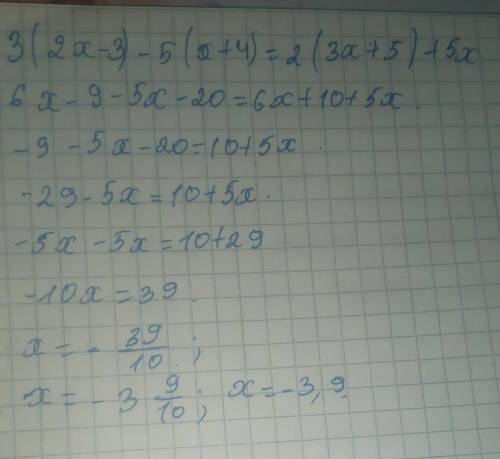 3(2x-3)-5(x+4)=2(3x+5)+5x
6x-9-5x-20=6x+10+5x.
-9-5x-20=10+5x.
-29-5x=10+5x.
-5x-5x=10+29
-10x=39.
x=-39/10;
x=-3 9/10; x=-3,9